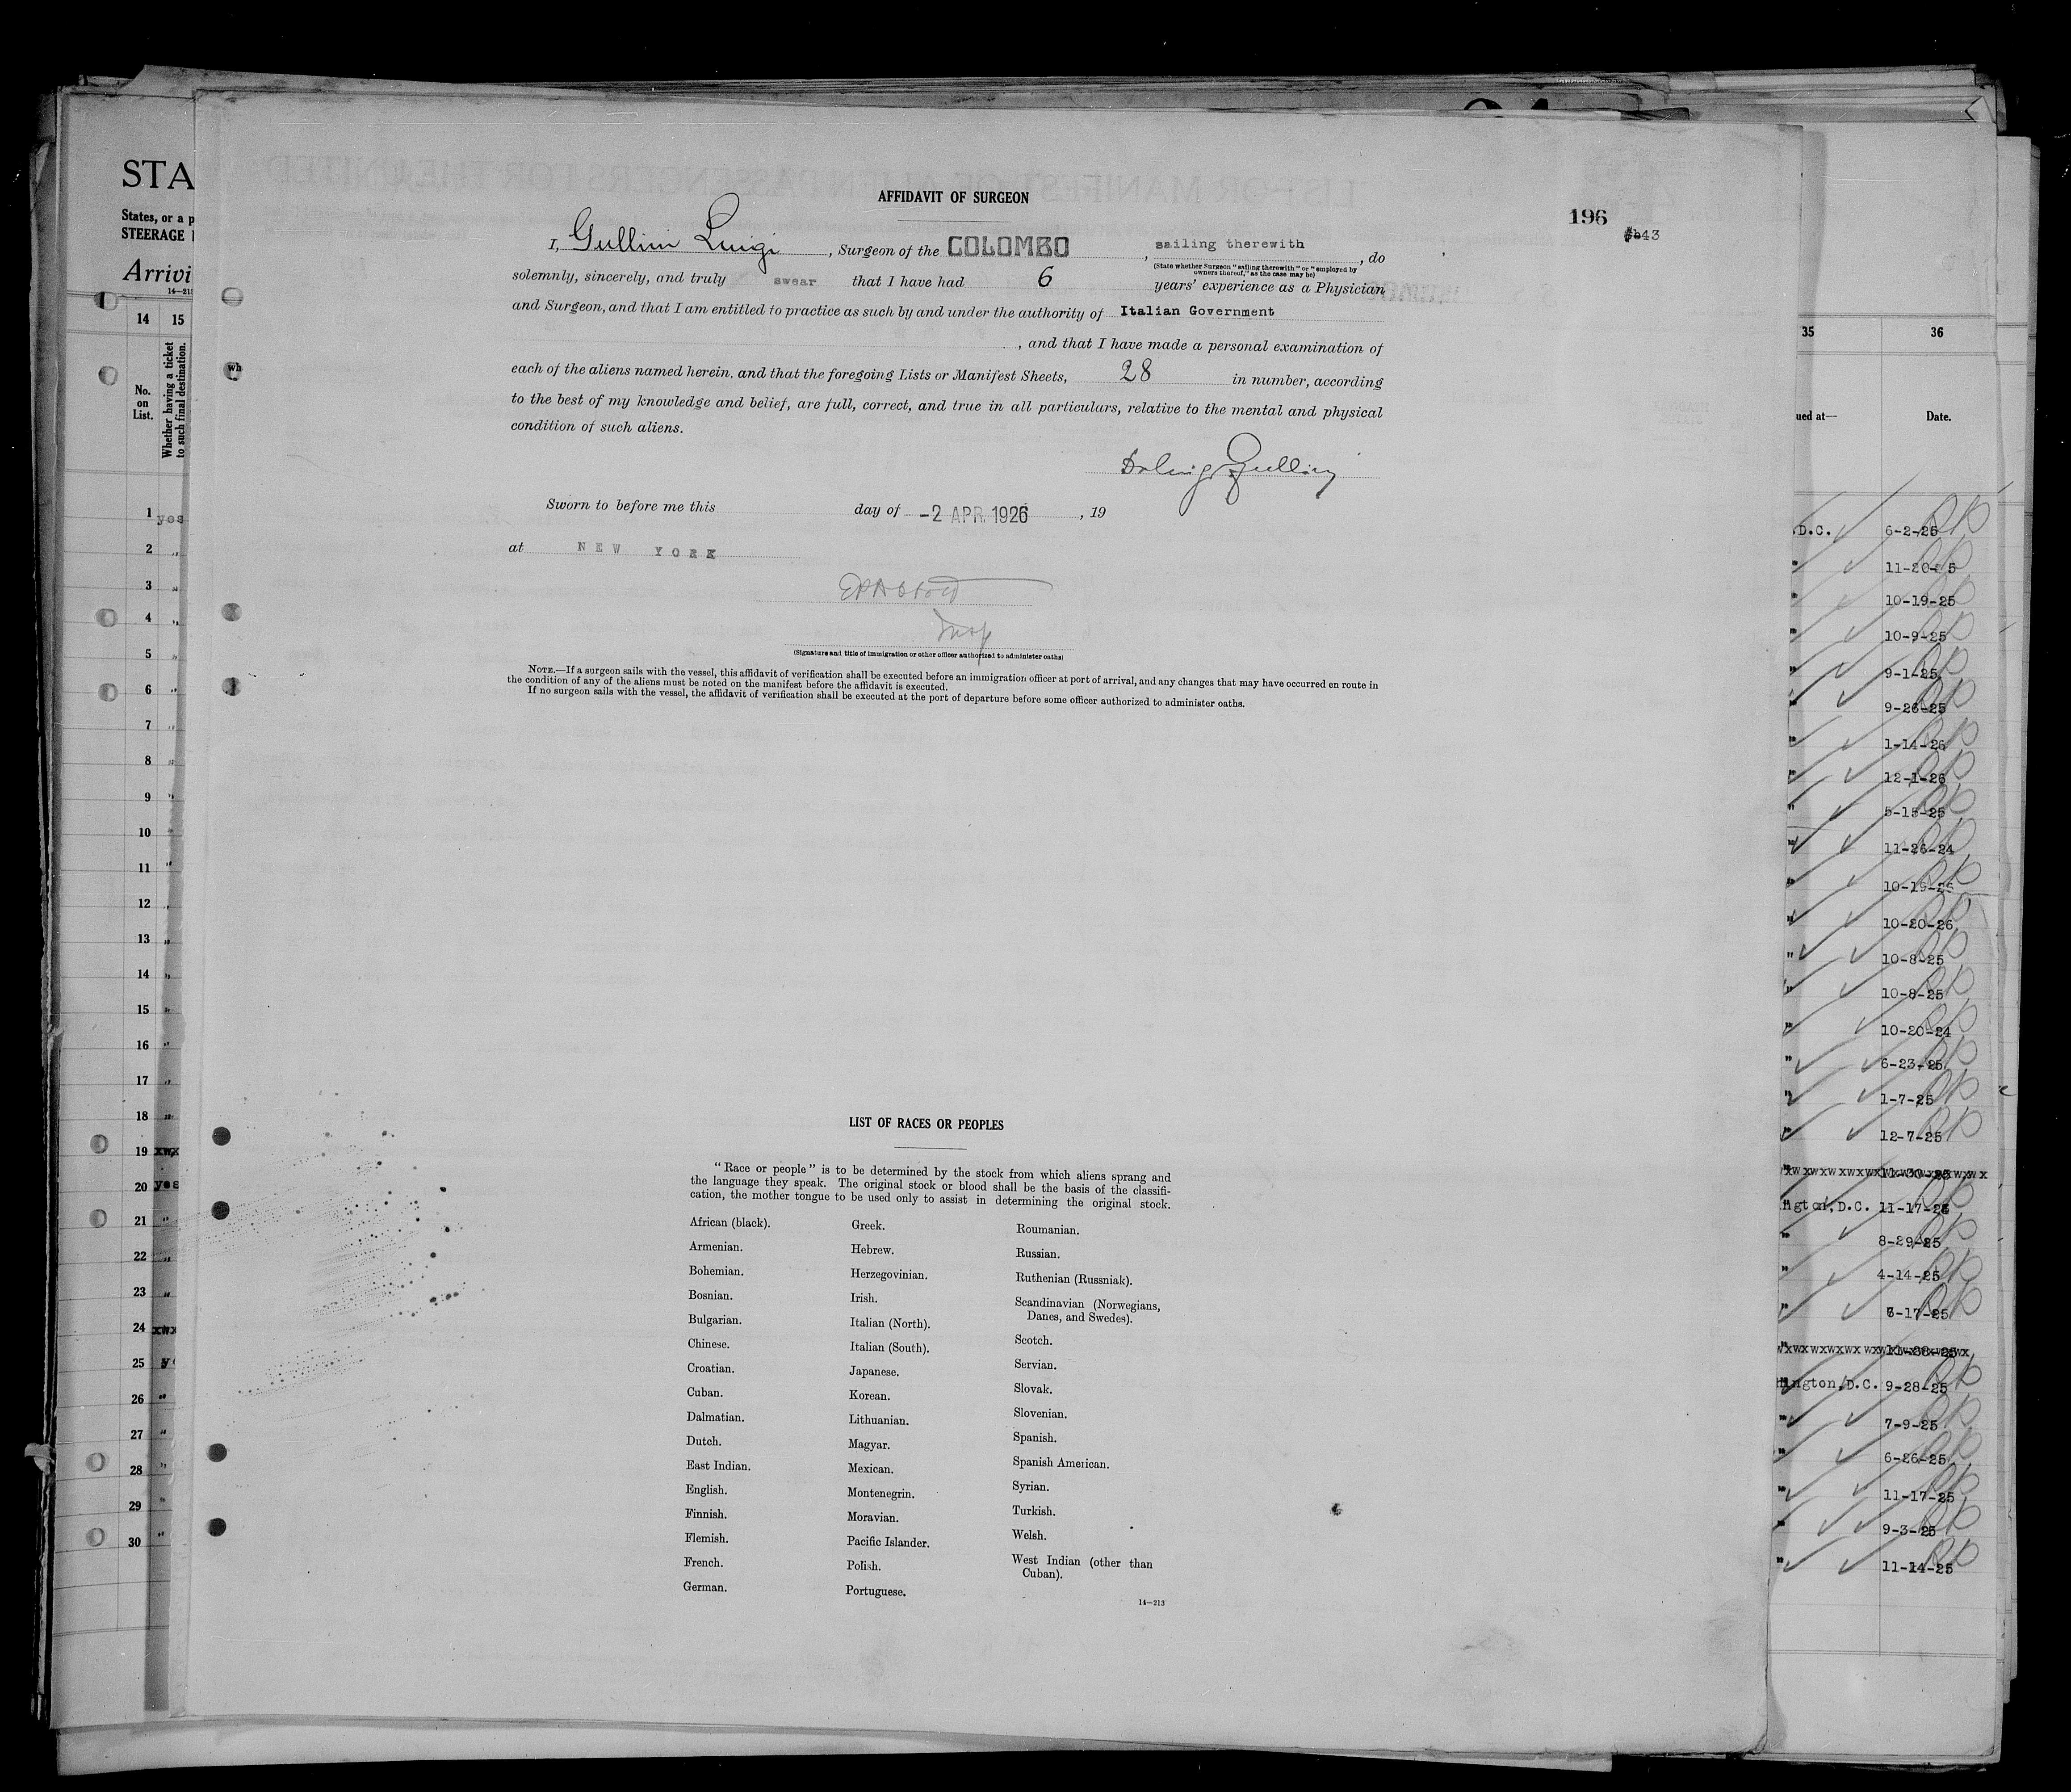 AFFIDAVIT OF SURGEON
196
43
I, Gullini Luigi, Surgeon of the COLOMBO, sailing therewith, do
(State whether Surgeon "sailing therewith" or "employed by
owners thereof," as the case may be)
solemnly, sincerely, and truly swear that I have had 6 years' experience as a Physician
and Surgeon, and that I am entitled to practice as such by and under the authority of Italian Government
, and that I have made a personal examination of
each of the aliens named herein, and that the foregoing Lists or Manifest Sheets, 28 in number, according
to the best of my knowledge and belief, are full, correct, and true in all particulars, relative to the mental and physical
condition of such aliens.
Sworn to before me this day of -2 APR 1926, 19
at NEW YORK
Insp
(Signature and title of immigration or other officer authorized to administer oaths)
NOTE.—If a surgeon sails with the vessel, this affidavit of verification shall be executed before an immigration officer at port of arrival, and any changes that may have occurred en route in
the condition of any of the aliens must be noted on the manifest before the affidavit is executed.
If no surgeon sails with the vessel, the affidavit of verification shall be executed at the port of departure before some officer authorized to administer oaths.
LIST OF RACES OR PEOPLES
"Race or people" is to be determined by the stock from which aliens sprang and
the language they speak. The original stock or blood shall be the basis of the classifi-
cation, the mother tongue to be used only to assist in determining the original stock.
African (black).
Armenian.
Bohemian.
Bosnian.
Bulgarian.
Chinese.
Croatian.
Cuban.
Dalmatian.
Dutch.
East Indian.
English.
Finnish.
Flemish.
French.
German.
Greek.
Hebrew.
Herzegovinian.
Irish.
Italian (North).
Italian (South).
Japanese.
Korean.
Lithuanian.
Magyar.
Mexican.
Montenegrin.
Moravian.
Pacific Islander.
Polish.
Portuguese.
Roumanian.
Russian.
Ruthenian (Russniak).
Scandinavian (Norwegians,
Danes, and Swedes).
Scotch.
Servian.
Slovak.
Slovenian.
Spanish.
Spanish American.
Syrian.
Turkish.
Welsh.
West Indian (other than
Cuban).
14—213
STA
States, or a p
STEERAGE
Arrivi
14—213
14 15
No.
on
List.
Whether having a ticket
to such final destination.
wh
1 yes
2 "
3 "
4 "
5 "
6 "
7 "
8 "
9 "
10 "
11 "
12 "
13 "
14 "
15 "
16 "
17 "
18 "
19 xwx
20 yes
21 "
22 "
23 "
24 xwx
25 y
26 "
27 "
28 "
29 "
30 "
35 36
ued at— Date.
D.C. 6-2-25
" 11-20-25
" 10-19-25
" 10-9-25
" 9-1-25
" 9-26-25
" 1-14-26
" 12-1-26
" 5-15-25
" 11-26-24
" 10-15-25
" 10-20-26
" 10-8-25
" 10-8-25
" 10-20-24
" 6-23-25
" 1-7-25
" 12-7-25
ngton, D.C. 11-17-25
" 8-29-25
" 4-14-25
" -17-25
ington, D.C. 9-28-25
" 7-9-25
" 6-26-25
" 11-17-25
" 9-3-25
" 11-14-25